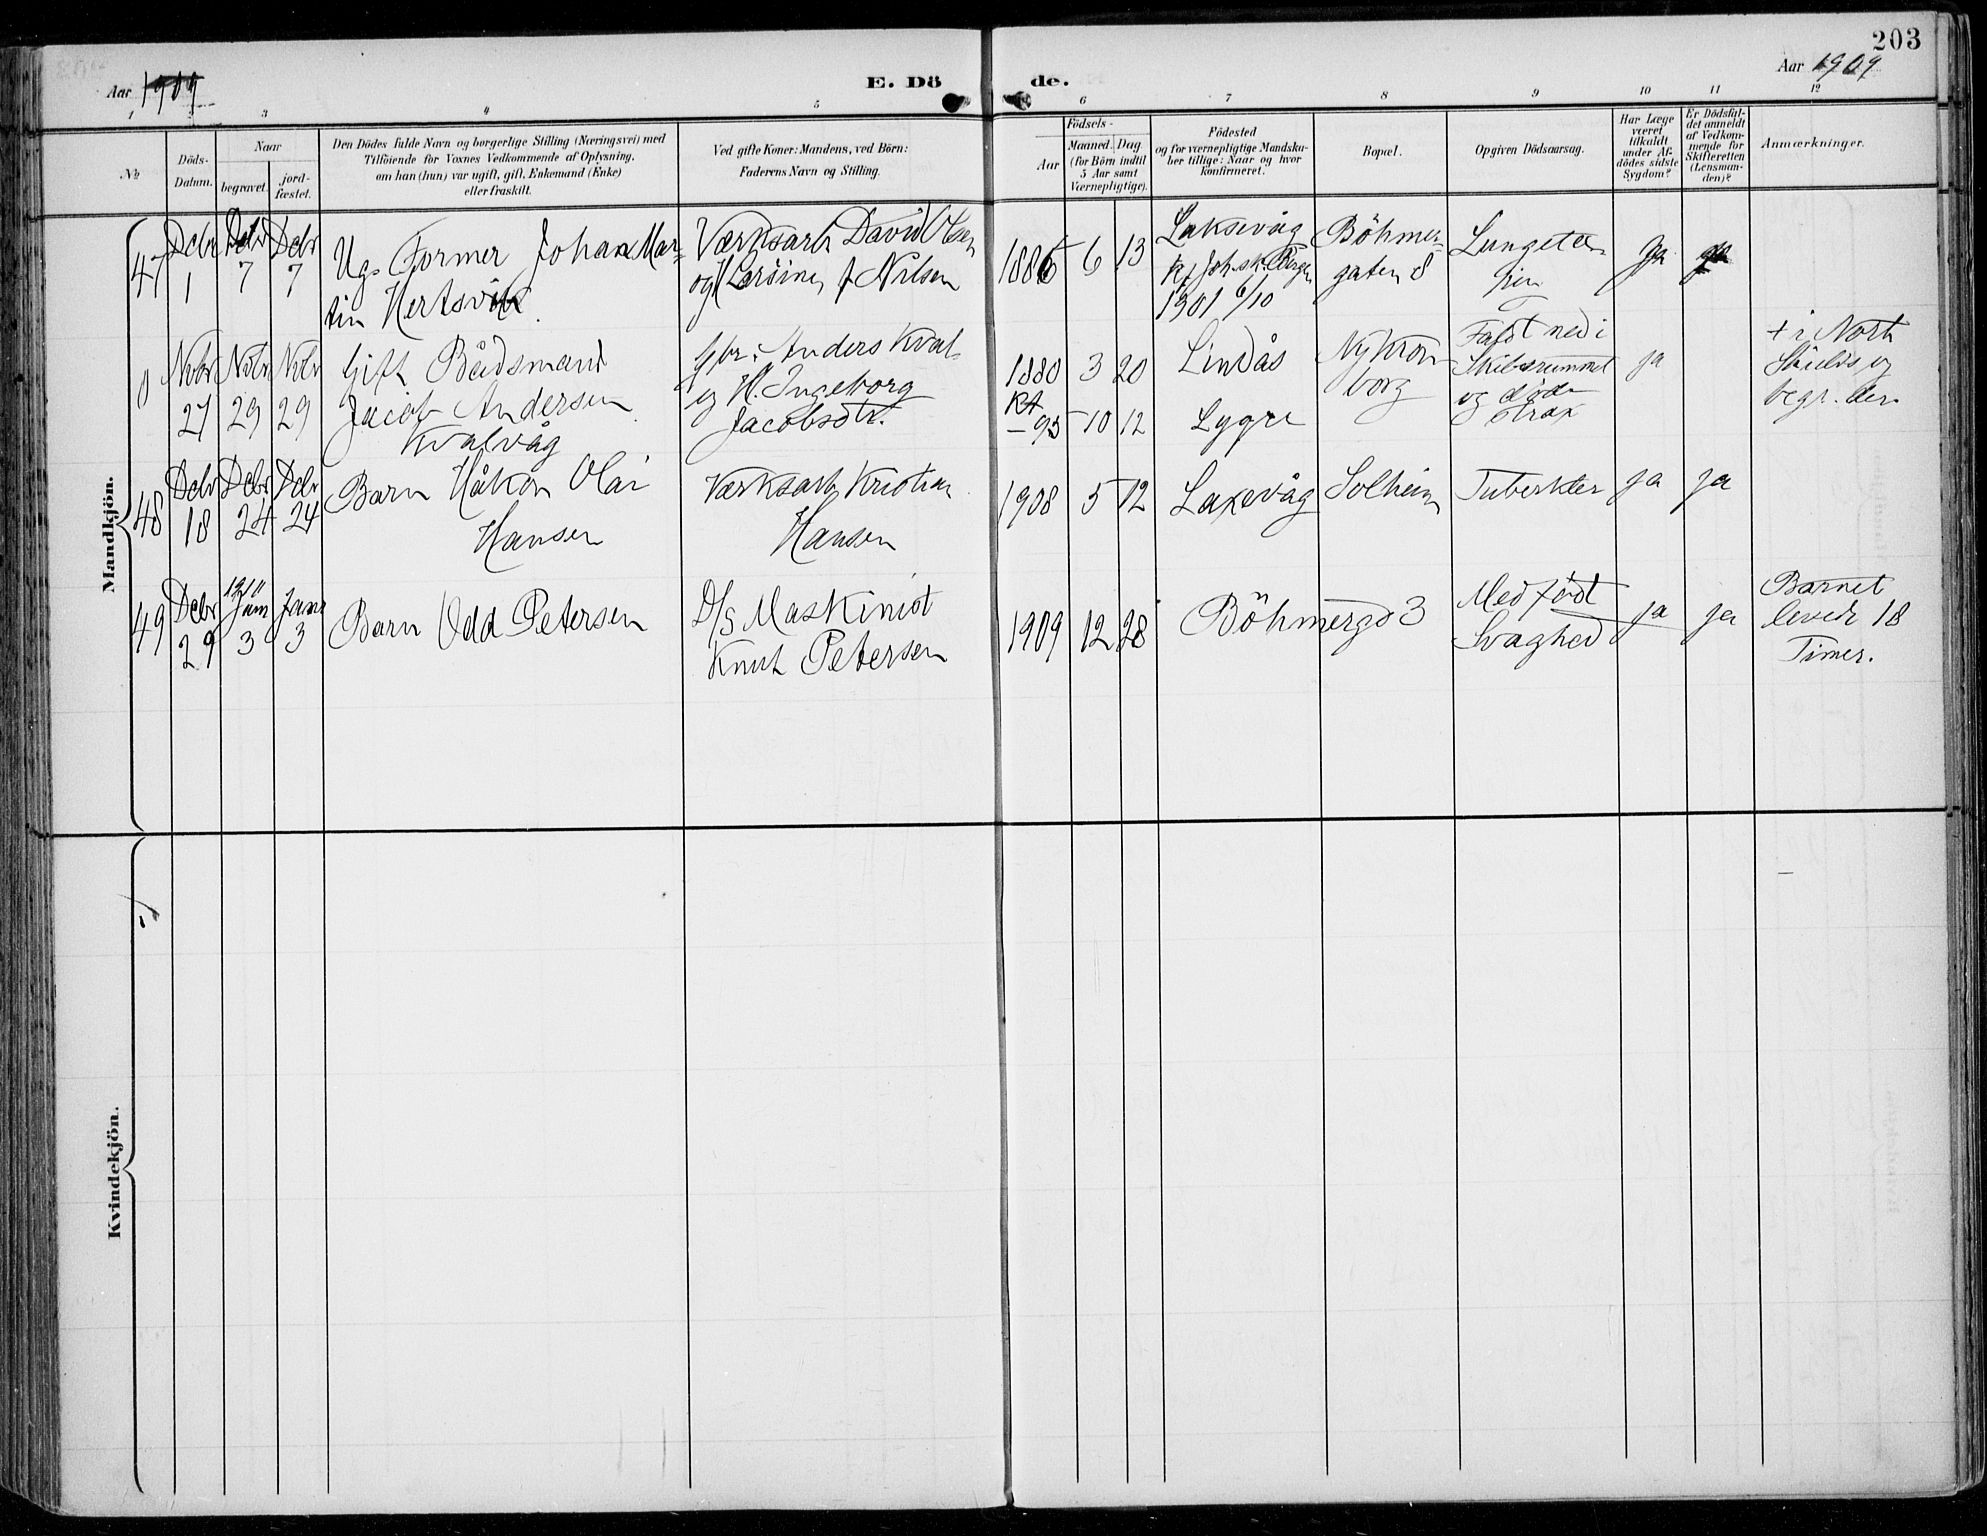 203
Aar 1909
E. Dö de.
Aar 1909
1 2 3 4 5 6 7 8 9 10 11 12
№
Döds-
Datum.
Naar
begravet.
jord-
fæstet.
Den Dödes fulde Navn og borgerlige Stilling (Næringsvei) med
Tilföiende for Voxnes Vedkommende af Oplysning,
om han (hun) var ugift, gift, Enkemand (Enke)
eller fraskilt.
Ved gifte Koner: Mandens, ved Börn:
Faderens Navn og Stilling.
Födsels-
Aar
Maaned. Dag.
(for Börn indtil
5 Aar samt
Værnepligtige).
Födested
og for værnepligtige Mandska-
ber tillige: Naar og hvor
konfirmeret.
Bopæl.
Opgiven Dödsaarsag.
Har Læge
været
tilkaldt
under Af-
dödes sidste
Sygdom?
Er Dödsfal-
det anmeldt
af Vedkom-
mende for
Skifteretten
(Lensman-
den)?
Anmærkninger.
Mandkjön.
47
Dcbr
1
Dcbr
7
Dcbr
7
Ug. Former Johan Mar-
tin Hertsvik.
Værksarb David Olsen
og f Nilsen
1886 6 13
Laksevåg
Kf Joh. sk. Bergen
1901 6/10
Böhmer-
gaten 8
Ja
ja
0
Nvbr
27
Nvbr
29
Nvbr
29
Gift Bådsmand
Jacob Andersen
Kvalvåg
Gbr. Anders Kval.
og H. Ingeborg
Jacobsdtr.
1880 3 20
Kf
- 95 10 12
Lindås
Lygre
Nykron
borg
Faldt ned i
Skibsrummet
og döde
strax
ja
+ i North
Shields og
begr. der.
48
Dcbr
18
Dcbr
24
Dcbr
24
Barn Håkon Olai
Hansen
Værksarb. Kristian
Hansen
1908 5 12
Laxevåg
Solheim
Tuberkler
ja
ja
49
Dcbr
29
1910
Jan
3
Janr
3
Barn Odd Petersen
D/S Maskinist
Knut Petersen
1909 12 28
Böhmergd 3
Medfödt
Svaghed
ja
ja
Barnet
levede 18
Timer.
Kvindekjön.